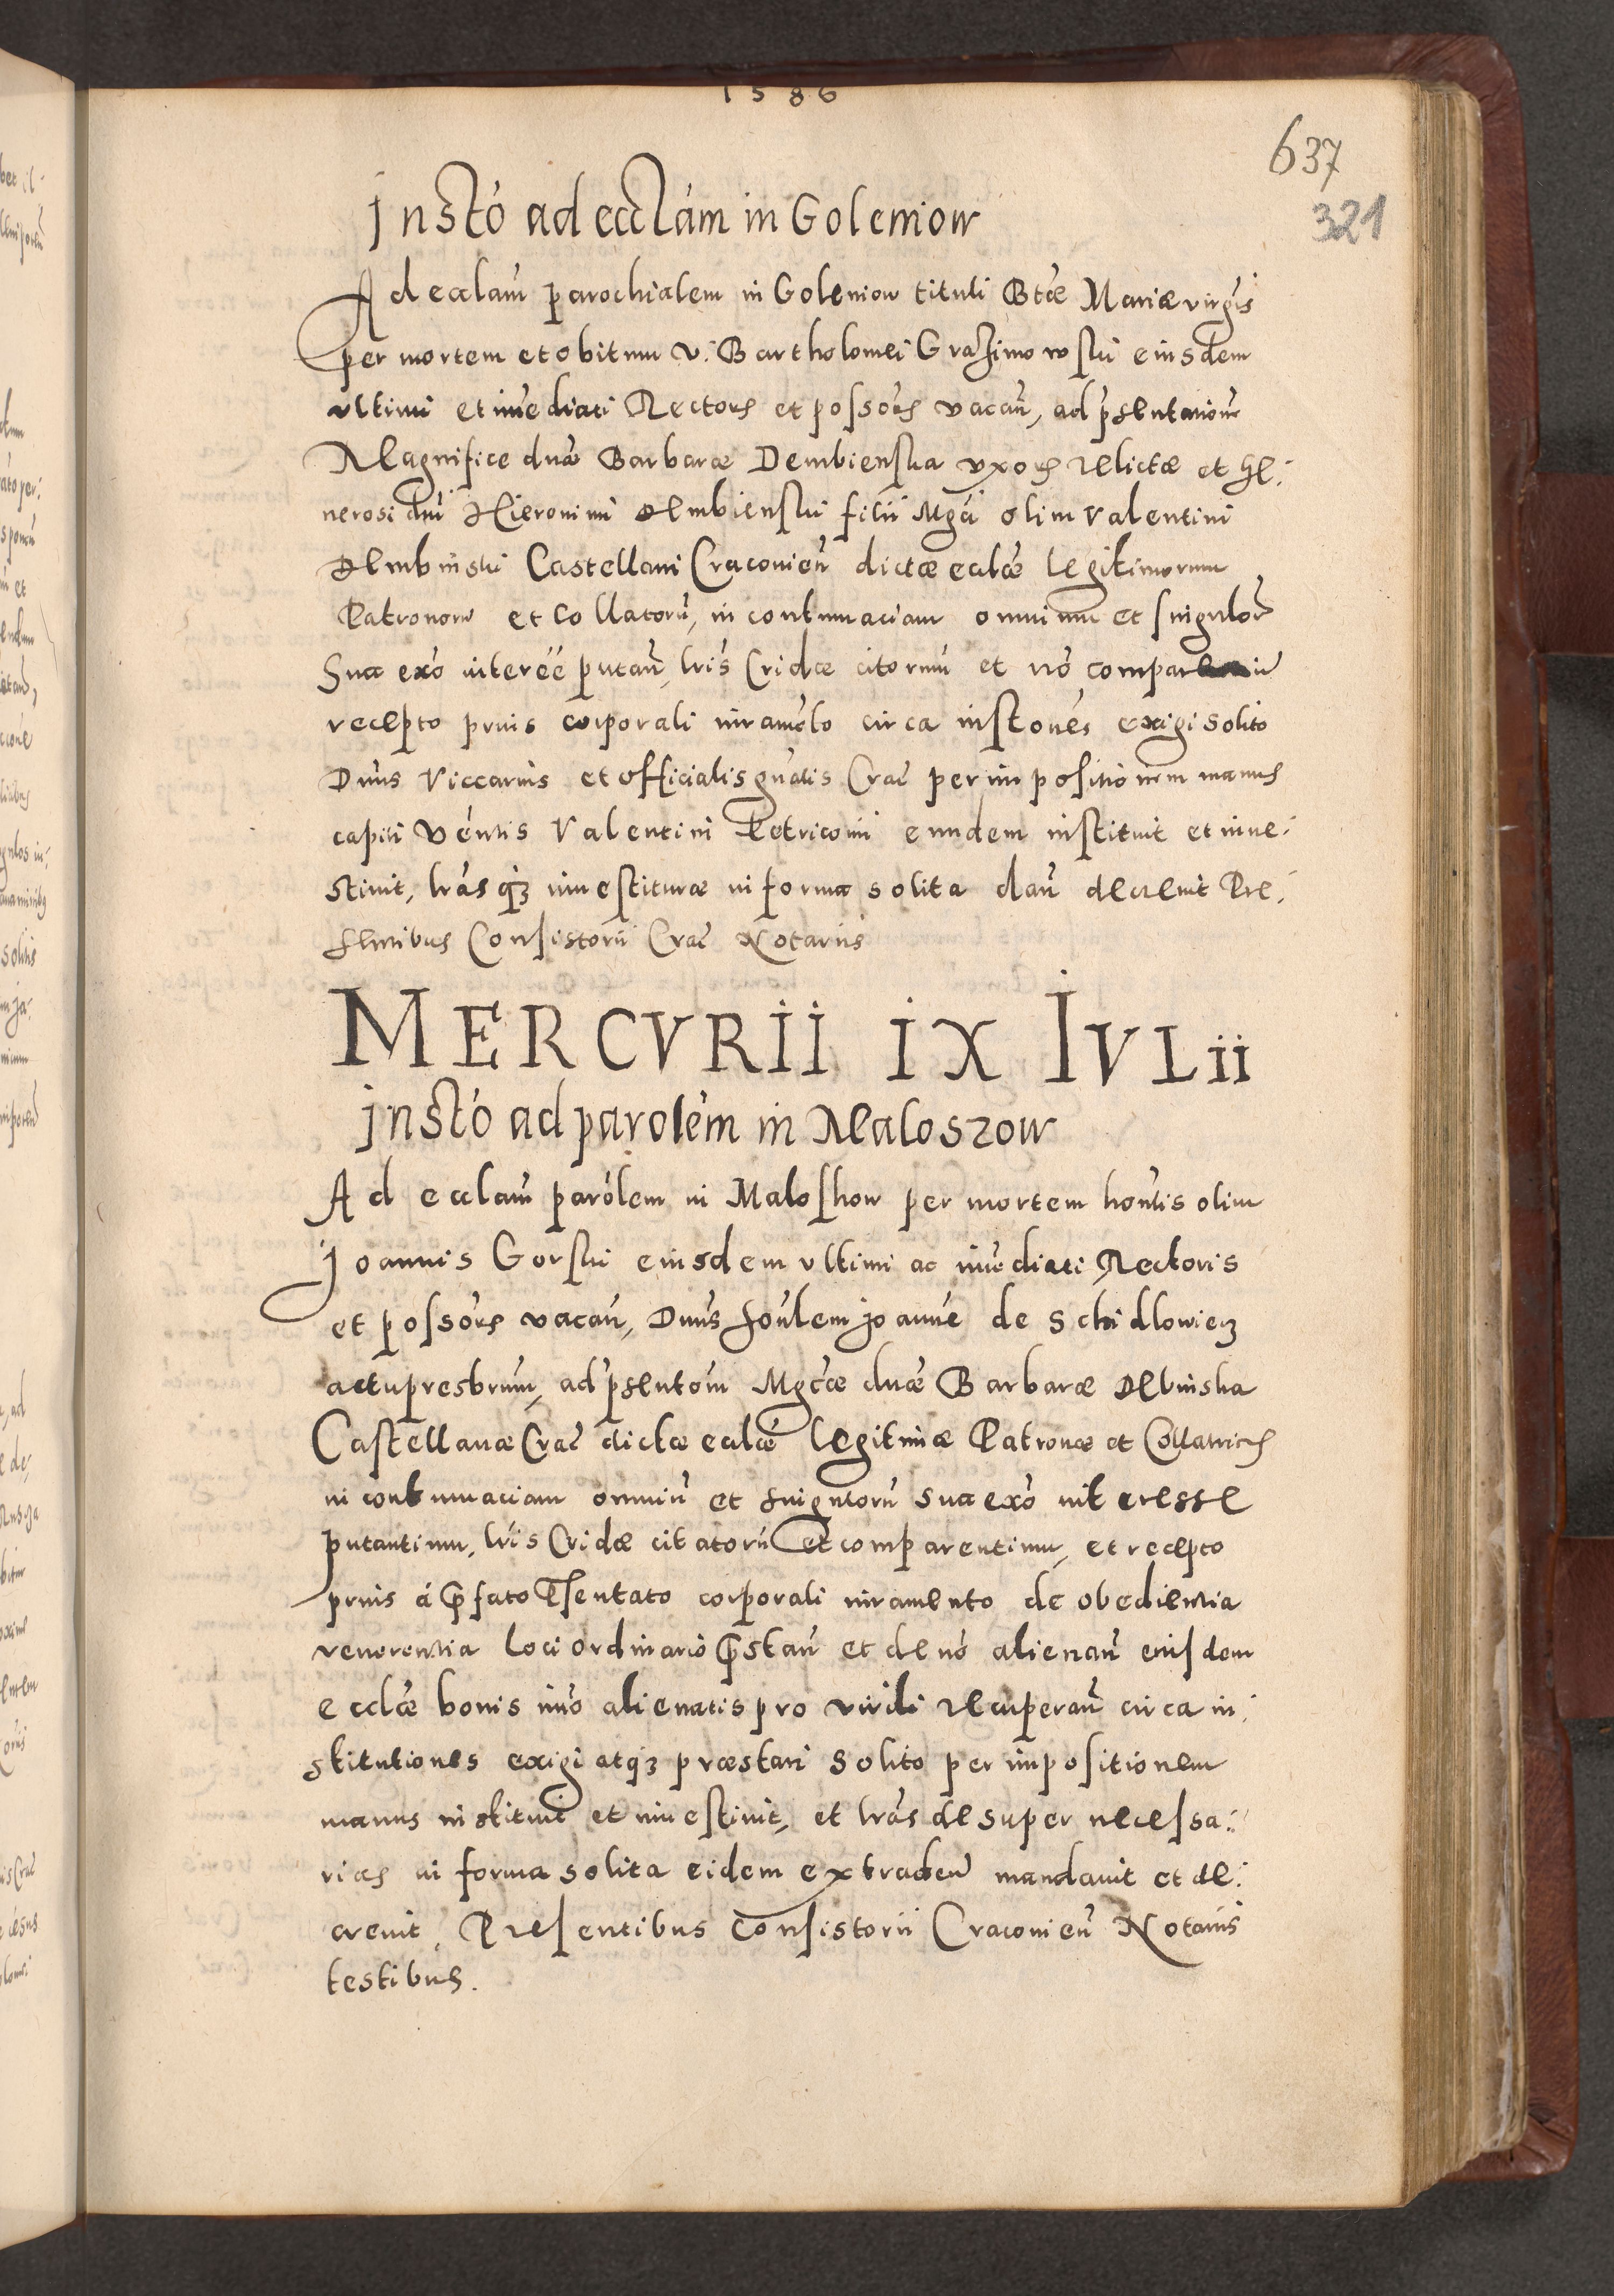 1586
637
321
Jnstó ad ecclám in Goleniow
Ad ecclam̃ parochialem in Goleniow tituli Btæ Mariæ virgis
per mortem et obitum v. Bartholomei Grazimowski eiusdem
vltimi et im̃ediati Rectoris et possoris vacan̄, ad p̃sentationẽ
Magnificæ dnæ Barbaræ Dembienska vxoris relictæ et Ge:
nerosi dni Hieronimi Dembienski filii Mgci olim Valentini
Dembinski Castellani Cracovien̄ dictæ ecclæ legitimorum
Patronorũ et Collatorũ, in contumaciam omnium et singulorũ
Sua exo interéé putan̄, lris Cridæ citorum et nó comparen
recepto prius corporali iuramẽto circa instónes exigi solito
Dnus Viccarius et officialis gnãlis Crac̄ per impositionem manus
capiti vẽntis Valentini Petriconii eundem instituit et inue:
stiuit, lrasq3 inuestituræ in forma solita dan̄ decreuit Præ:
sentibus Consistorii Crac̄ Notariis
MERCVRii iX IVLii
Jnstó ad parolẽm in Maloszow
Ad ecclam̃ parólem in Maloshow per mortem honlis olim
Joannis Gorski eiusdem vltimi ac im̃ediati Rectoris
et possoris vacan̄, Dnus honlem Joannẽ de Schidlowiecz
actu presbrum, ad p̃sentom Mgcæ dnæ Barbaræ Debinska
Castellanæ Crac̄ dictæ ecclæ legitimæ Patronæ et Collatricis
in contumaciam omniũ et singulorũ sua exó interesse
putantium, lris Cridæ citatorũ et comparentium, et recepto
prius á præfato Præsentato corporali iuramento de obedientia
reuerentia loci ordinario præstan̄ et de nó alienan̄ eiusdem
ecclæ bonis im̃o alienatis pro virili recuperan̄ circa in:
stitutiones exigi atq3 præstari solito per impositionem
manus instituit et inuestiuit, et lras desuper necessa:
rias in forma solita eidem extraden̄ mandauit et de:
creuit, Presentibus Consistorii Cracouien̄ Notariis
testibus.